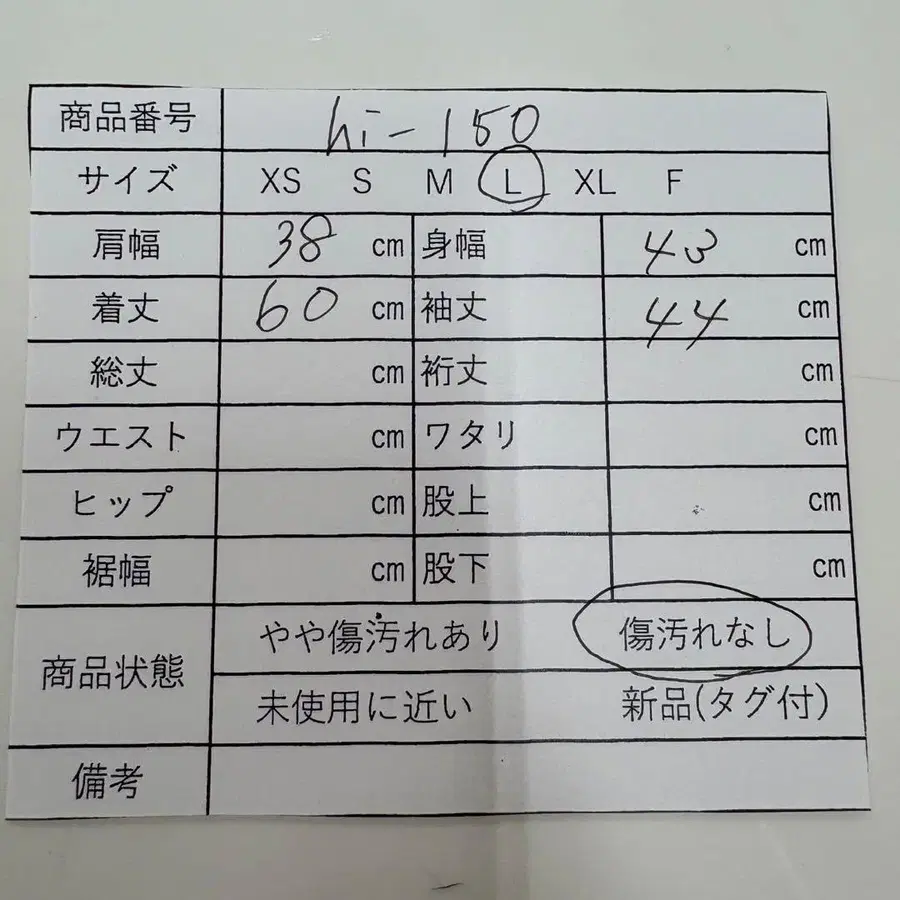 商品番号 hi-150
サイズ XS S M L XL F
肩幅 38 cm 身幅 43 cm
着丈 60 cm 袖丈 44 cm
総丈 cm 裄丈 cm
ウエスト cm ワタリ cm
ヒップ cm 股上 cm
裾幅 cm 股下 cm
商品状態 やや傷汚れあり 傷汚れなし
未使用に近い 新品(タグ付)
備考